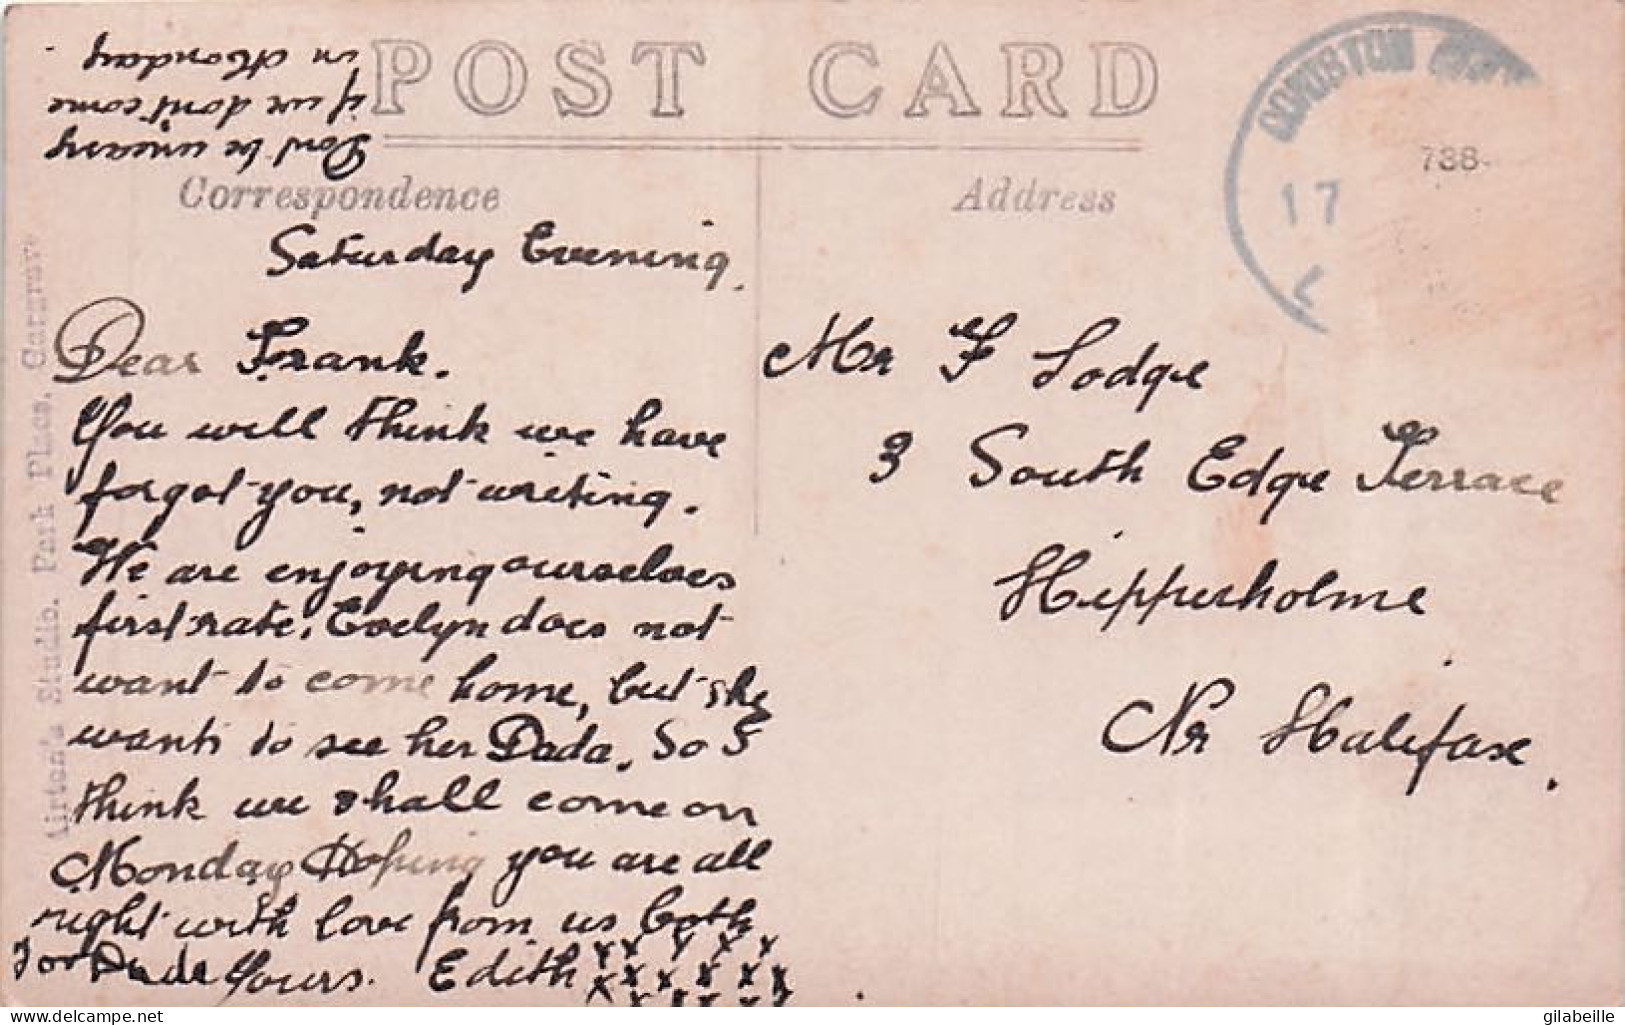 POST CARD
Dont be uneasy
if we don't come
in Monday.
Correspondence
Address
CONISTON
17
738
Airton's Studio. Park Place. Gargrave
Saturday Evening.
Dear Frank.
You will think we have
forgot you, not writing.
We are enjoying ourselves
first rate. Evelyn does not
want to come home, but she
wants to see her Dada. So I
think we shall come on
Monday Hoping you are all
right with love from us both
Yours. Edith
x x x x x
x x x x x x
x x x x
Mr F Lodge
3 South Edge Terrace
Hipperholme
Nr Halifax.
delcampe.net
gilabeille